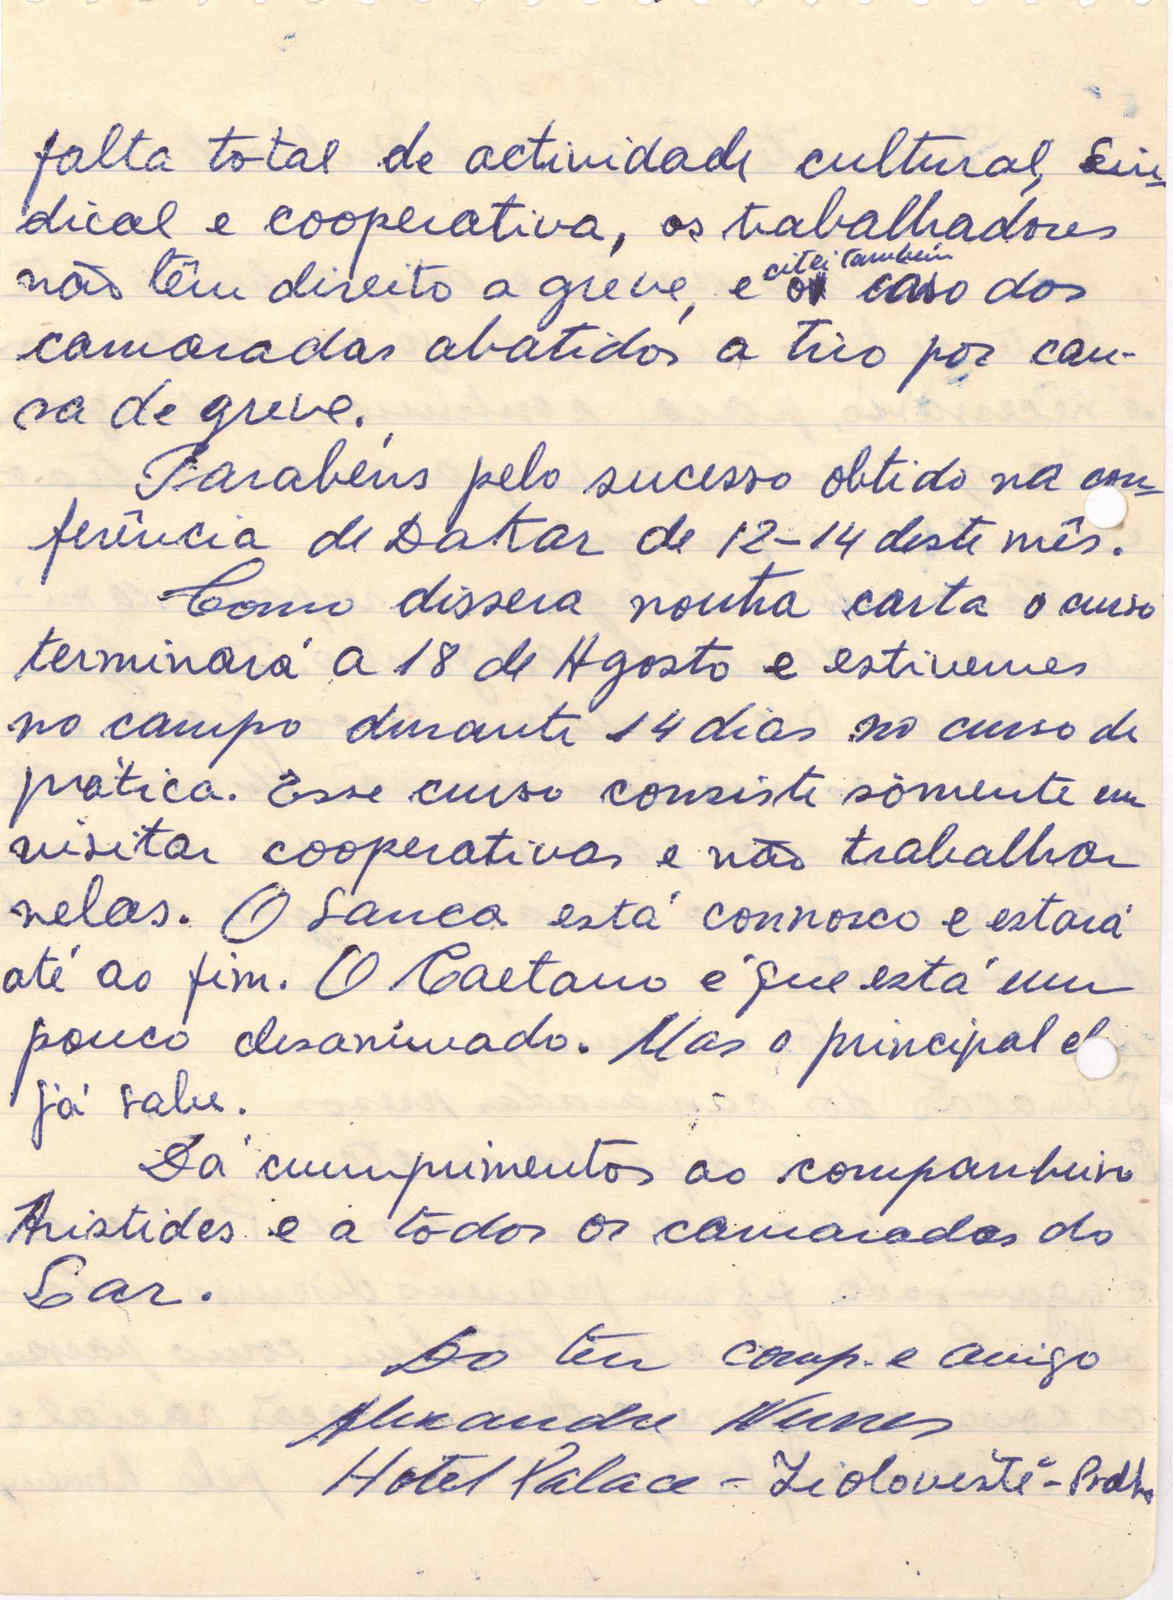 falta total de actividade cultural, sin-
dical e cooperativa, os trabalhadores
não têm direito a greve, e citei também o caso dos
camaradas abatidos a tiro por cau-
sa de greve.
Parabéns pelo sucesso obtido na con-
ferência de Dakar de 12-14 deste mês.
Como dissera noutra carta o curso
terminará a 18 de Agosto e estivemos
no campo durante 14 dias no curso de
prática. Esse curso consiste sòmente em
visitar cooperativas e não trabalhar
nelas. O Sanca está connosco e estará
até ao fim. O Caetano é que está um
pouco desanimado. Mas o principal el
já sabe.
Dá cumprimentos ao companheiro
Aristides e a todos os camaradas do
Lar.
Do teu comp. e amigo
Alexandre Nunes
Hotel Palace -